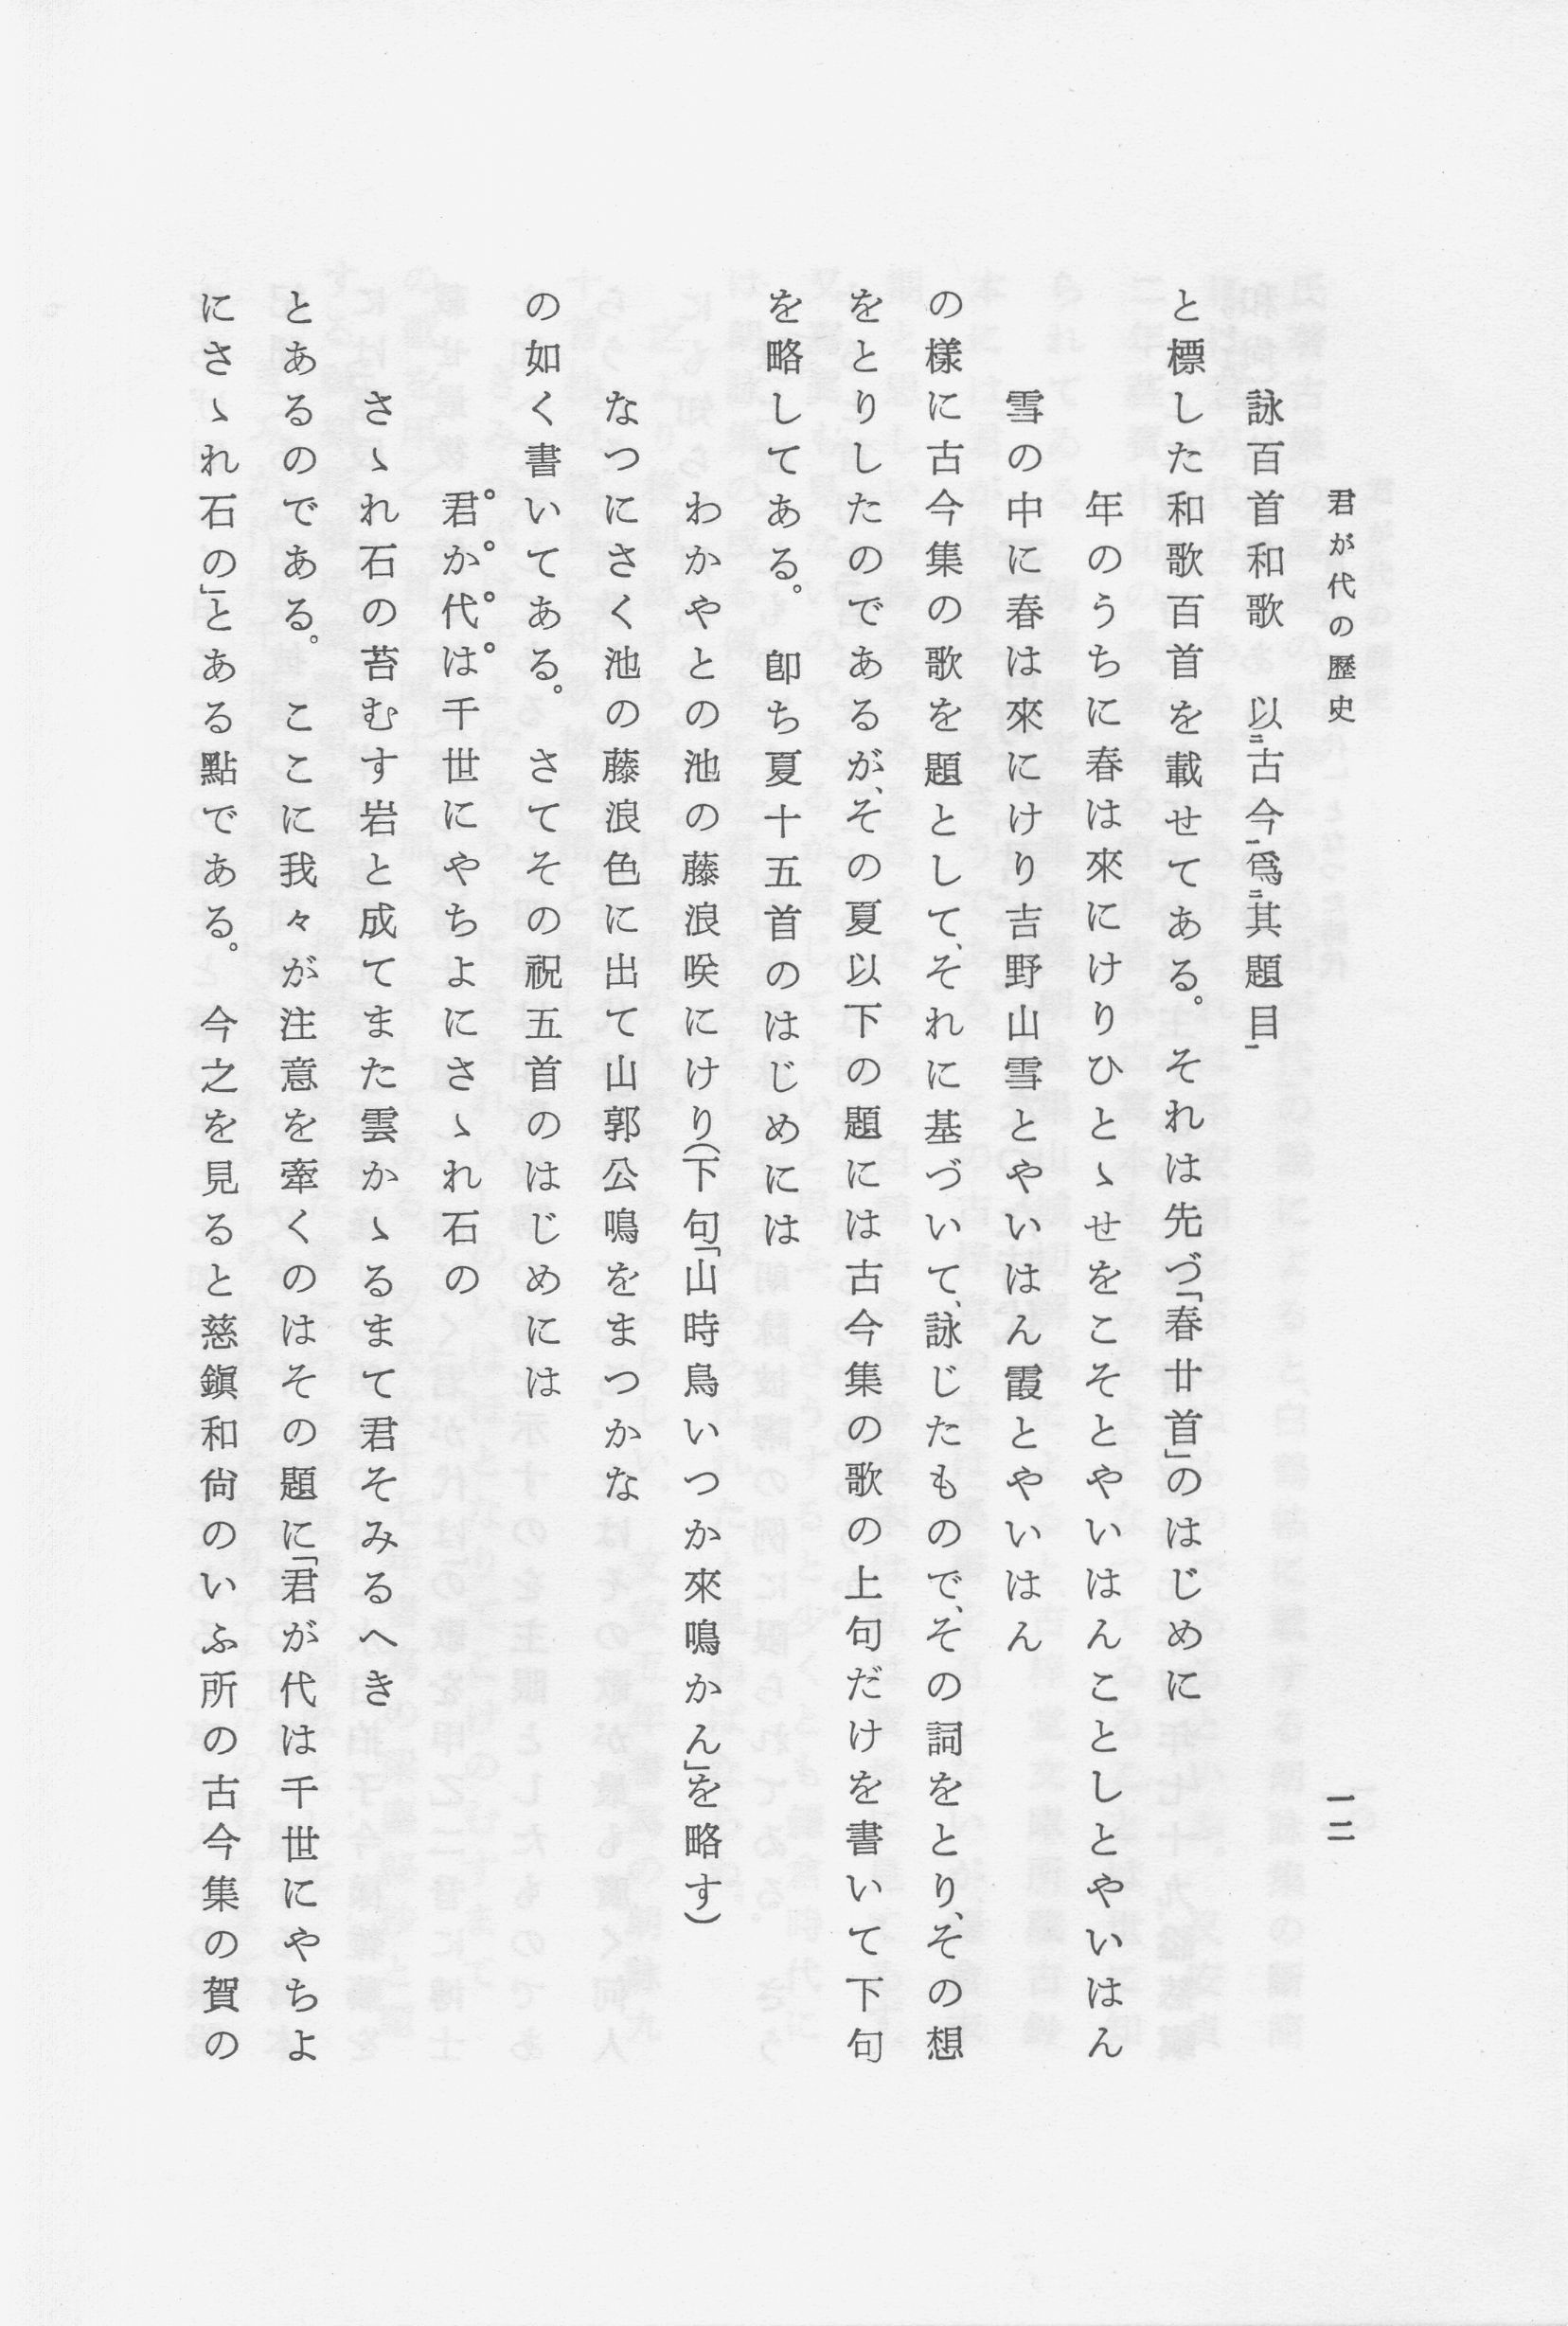 君が代の歷史
一二
詠百首和歌　以㆓古今㆒爲㆓其題目㆒
と標した和歌百首を載せてある。それは先づ「春廿首」のはじめに
年のうちに春は來にけりひとゝせをこそとやいはんことしとやいはん
雪の中に春は來にけり吉野山雪とやいはん霞とやいはん
の樣に古今集の歌を題として、それに基づいて、詠じたもので、その詞をとり、その想
をとりしたのであるが、その夏以下の題には古今集の歌の上句だけを書いて下句
を略してある。卽ち夏十五首のはじめには
わかやとの池の藤浪咲にけり(下句「山時鳥いつか來鳴かん」を略す)
なつにさく池の藤浪色に出て山郭公鳴をまつかな
の如く書いてある。さてその祝五首のはじめには
君か代は千世にやちよにさゝれ石の
さゝれ石の苔むす岩と成てまた雲かゝるまて君そみるへき
とあるのである。ここに我々が注意を牽くのはその題に「君が代は千世にやちよ
にさゝれ石の」とある點である。今之を見ると慈鎭和尙のいふ所の古今集の賀の